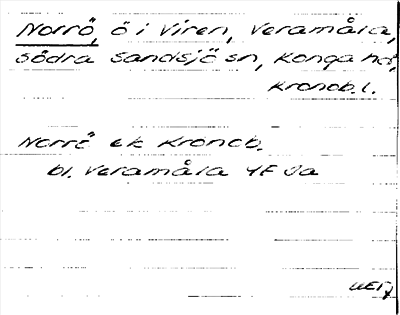 Norrö, ö i Viren, Veramåla,
södra Sandsjö sn, Konga hd,
Kronob. l.
Norrö ek Kronob.
bl. Veramåla 4F Ja